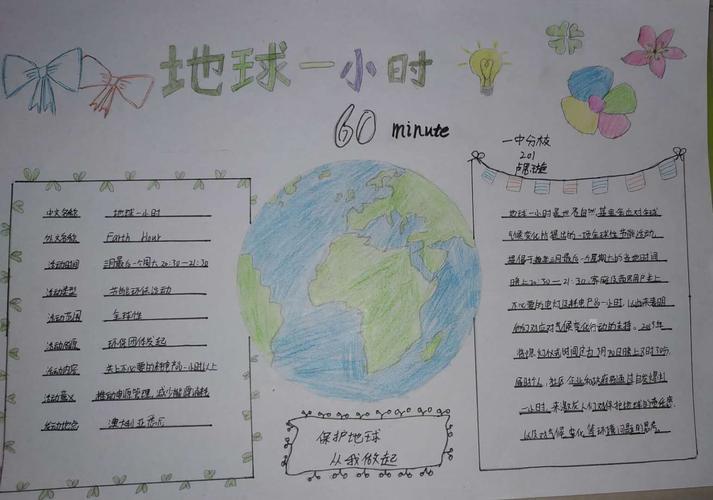 地球一小时
60 minute
一中分校
201
中文名称 地球一小时
外文名称 Earth Hour
活动时间 三月最后一个周六20:30—21:30
活动类型 节能环保活动
活动范围 全球性
活动 环保团体发起
活动内容 关上不必要的耗电产品一小时以上
活动意义 推动电源管理,减少能源消耗
活动地点 澳大利亚悉尼
保护地球
从我做起
地球一小时是世界自然基金会应对全球
气候变化所提出的一项全球性节能活动,
提倡于每年三月最后一个星期六的当地时间
晚上20:30—21:30,家庭及商界用户关上
不必要的电灯及耗电产品一小时,以此来表明
他们对应对气候变化行动的支持。
仪式时间定为3月30日晚上8时30分,
届时个人、社区、企业和政府将通过自发熄灯
一小时,来激发人们对保护地球的责任感,
以及对气候变化等环境问题的思考。